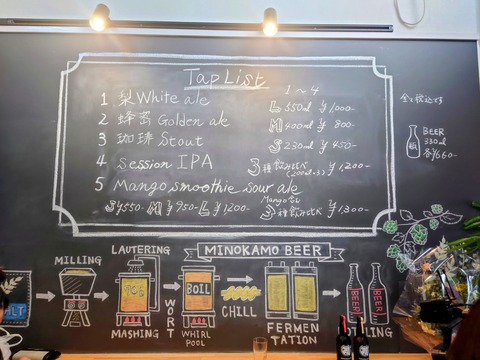 Tap List
1 梨 White ale
2 蜂蜜 Golden ale
3 珈琲 Stout
4 session IPA
5 Mango smoothie sour ale
S ¥550- M ¥950- L ¥1200-
1～4
L 550ml ¥1,000-
M 400ml ¥800-
S 230ml ¥450-
3種飲み比べ ¥1,200-
(200ml×3)
Mango含む
3種飲み比べ ¥1,300-
全て税込です
瓶
BEER
330ml
各¥660-
MINOKAMO BEER
MILLING
LAUTERING
MASHING
WORT
BOIL
WHIRL
POOL
CHILL
FERMEN
TATION
BEER
BEER